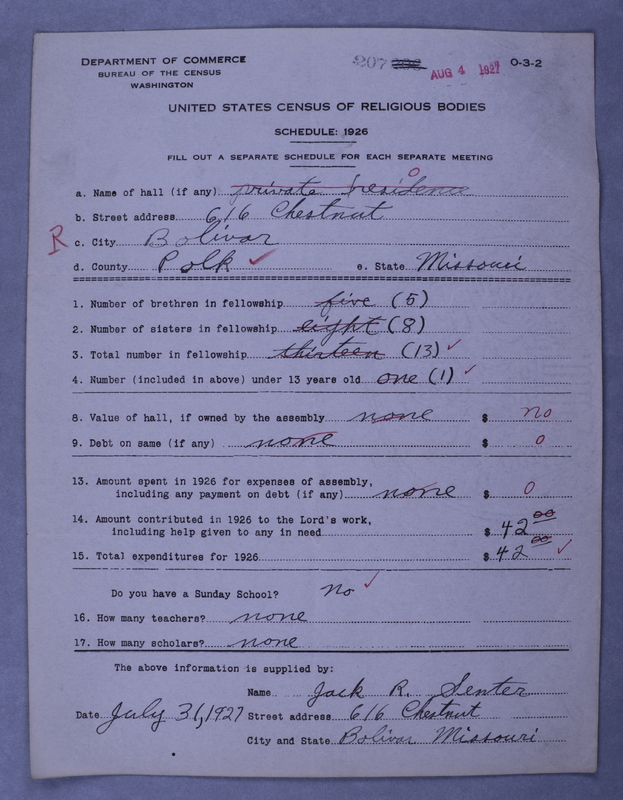 DEPARTMENT OF COMMERCE
BUREAU OF THE CENSUS
WASHINGTON
207
AUG 4 1927
O-3-2
UNITED STATES CENSUS OF RELIGIOUS BODIES
SCHEDULE: 1926
FILL OUT A SEPARATE SCHEDULE FOR EACH SEPARATE MEETING
a. Name of hall (if any) private residence 0
b. Street address 616 Chestnut
R
c. City Bolivar
d. County Polk ✓ e. State Missouri
1. Number of brethren in fellowship five (5)
2. Number of sisters in fellowship eight (8)
3. Total number in fellowship thirteen (13) ✓
4. Number (included in above) under 13 years old one (1) ✓
8. Value of hall, if owned by the assembly none $ no
9. Debt on same (if any) none $ 0
13. Amount spent in 1926 for expenses of assembly,
including any payment on debt (if any) none $ 0
14. Amount contributed in 1926 to the Lord's work,
including help given to any in need $ 42 00
15. Total expenditures for 1926 $ 42 00 ✓
Do you have a Sunday School? No ✓
16. How many teachers? none
17. How many scholars? none
The above information is supplied by:
Name Jack R. Senter
Date July 31, 1927 Street address 616 Chestnut
City and State Bolivar Missouri